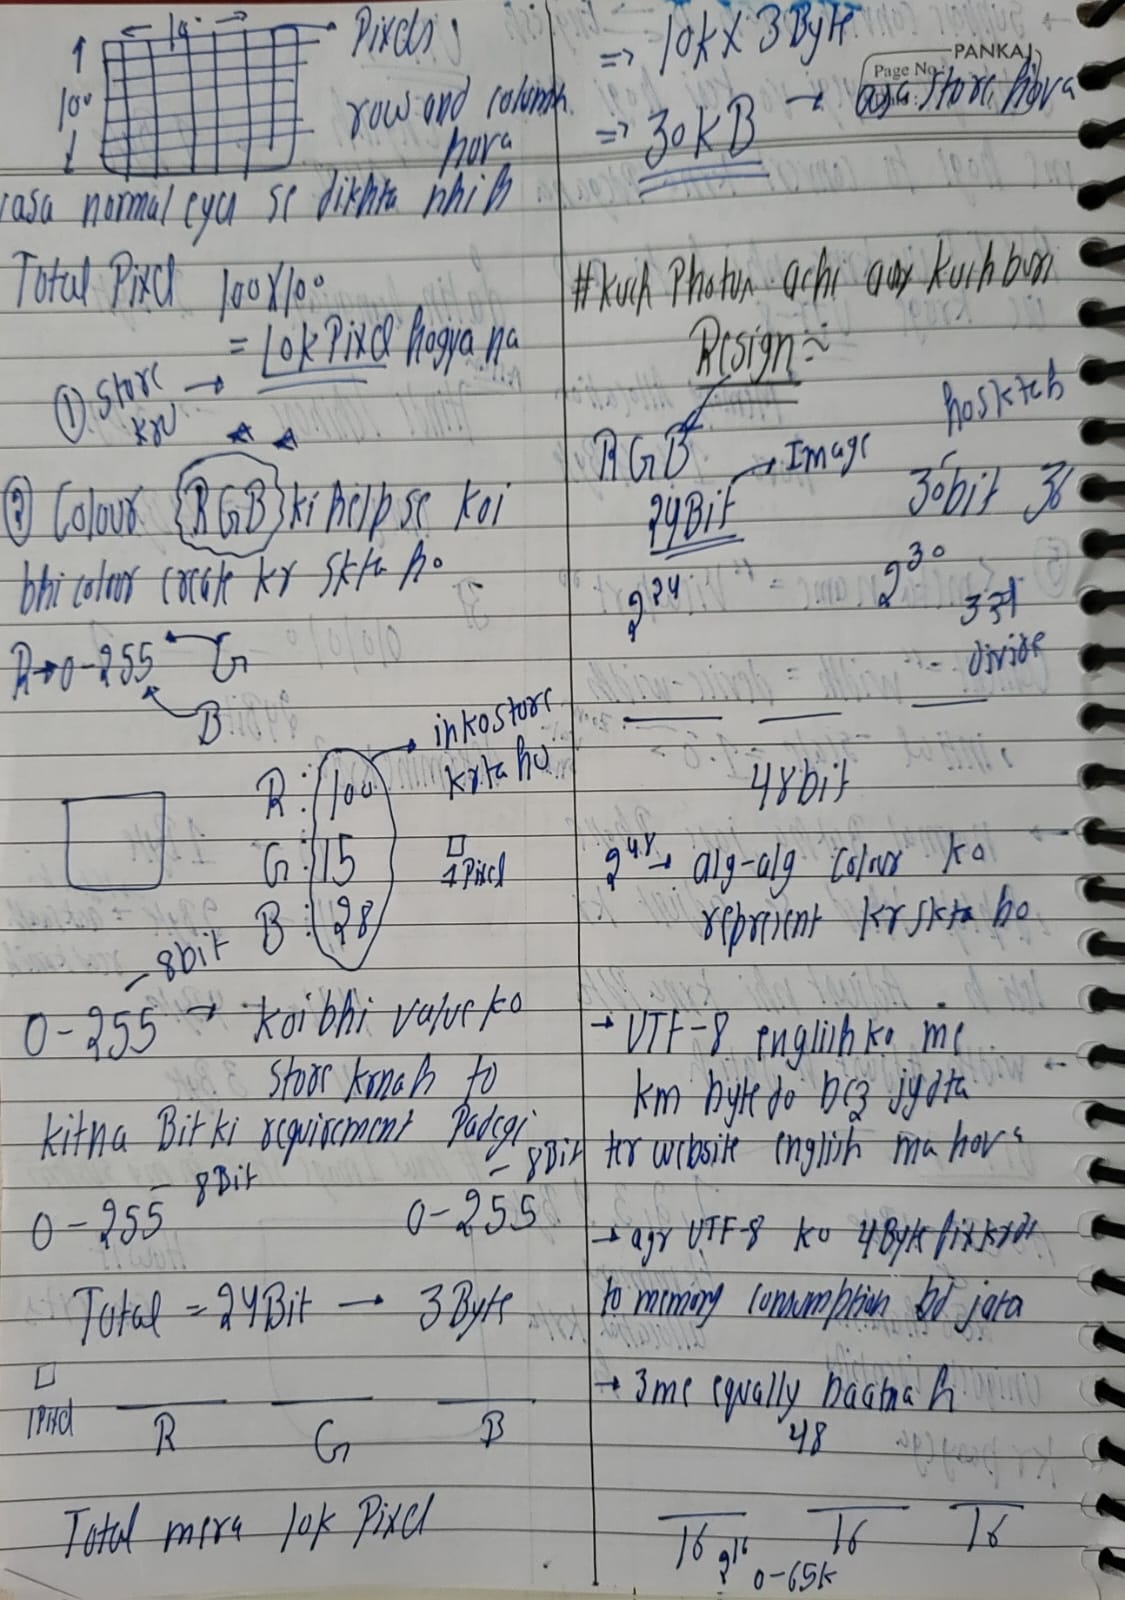 100
Pixels
row and column
hora
100
casa normal eyes se dikhta nhi h
Total Pixel 100x100
= 10k Pixel hogya na
① Store kru →
② Colour {RGB} ki help se koi
bhi colour create kr skta ho
R → 0-255 G
B
R : 100
G : 15
B : 28
inko store
krta hu
1 Pixel
8bit
0-255 → koi bhi value ko
store krna h to
kitna Bit ki requirement Padegi
0-255 - 8Bit
0-255 - 8Bit
Total = 24Bit → 3Byte
1Pixel
R G B
Total mera 10k Pixel
=> 10k x 3Byte
PANKAJ
Page No.
=> 30KB → asa store hora
# Kuch Photos achi aur kuch buri
Resign
RGB
24Bit → Image
ho skta h
30bit 36
2^24 2^30
divide
48bit
2^48 → alg-alg colour ko
represent kr skta ho
→ UTF-8 english ko me
km byte do bcz jyda
ter website english ma hora
→ agr UTF-8 ko 4Byte fix krde
to memory consumption bd jata
→ 3 me equally baatna h
48
16 16 16
2^16
0-65k